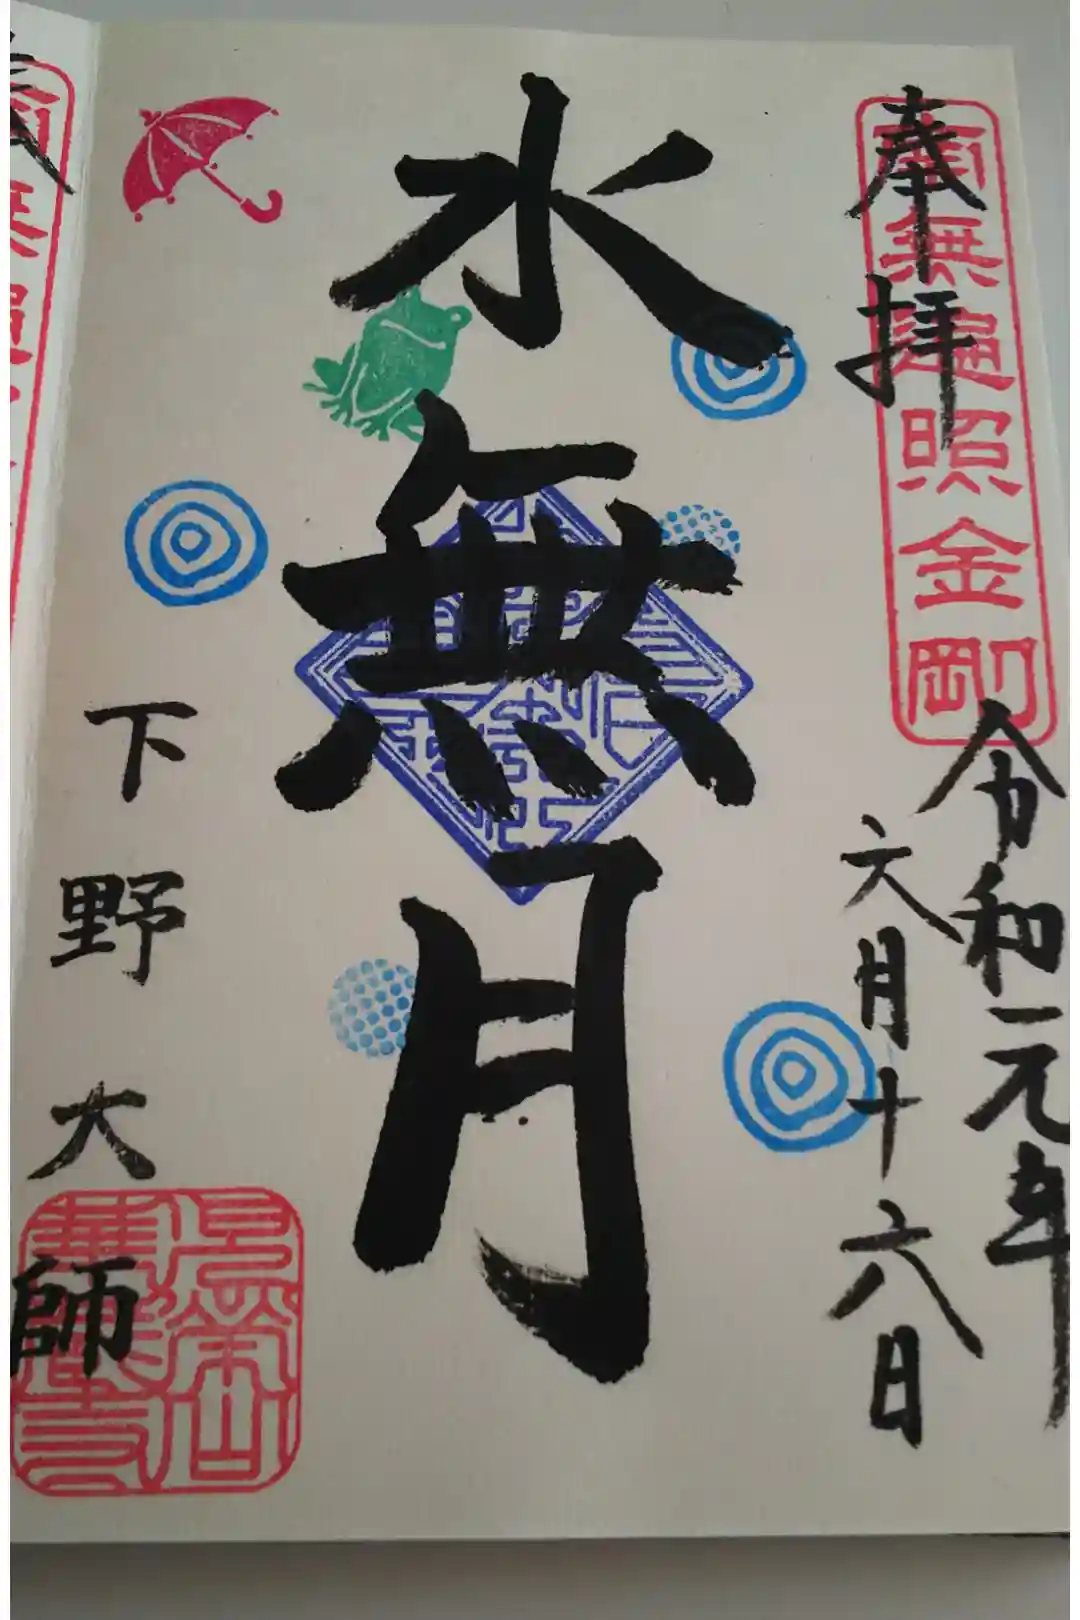 奉拝
南無遍照金剛
令和元年
六月十六日
水無月
下野大師